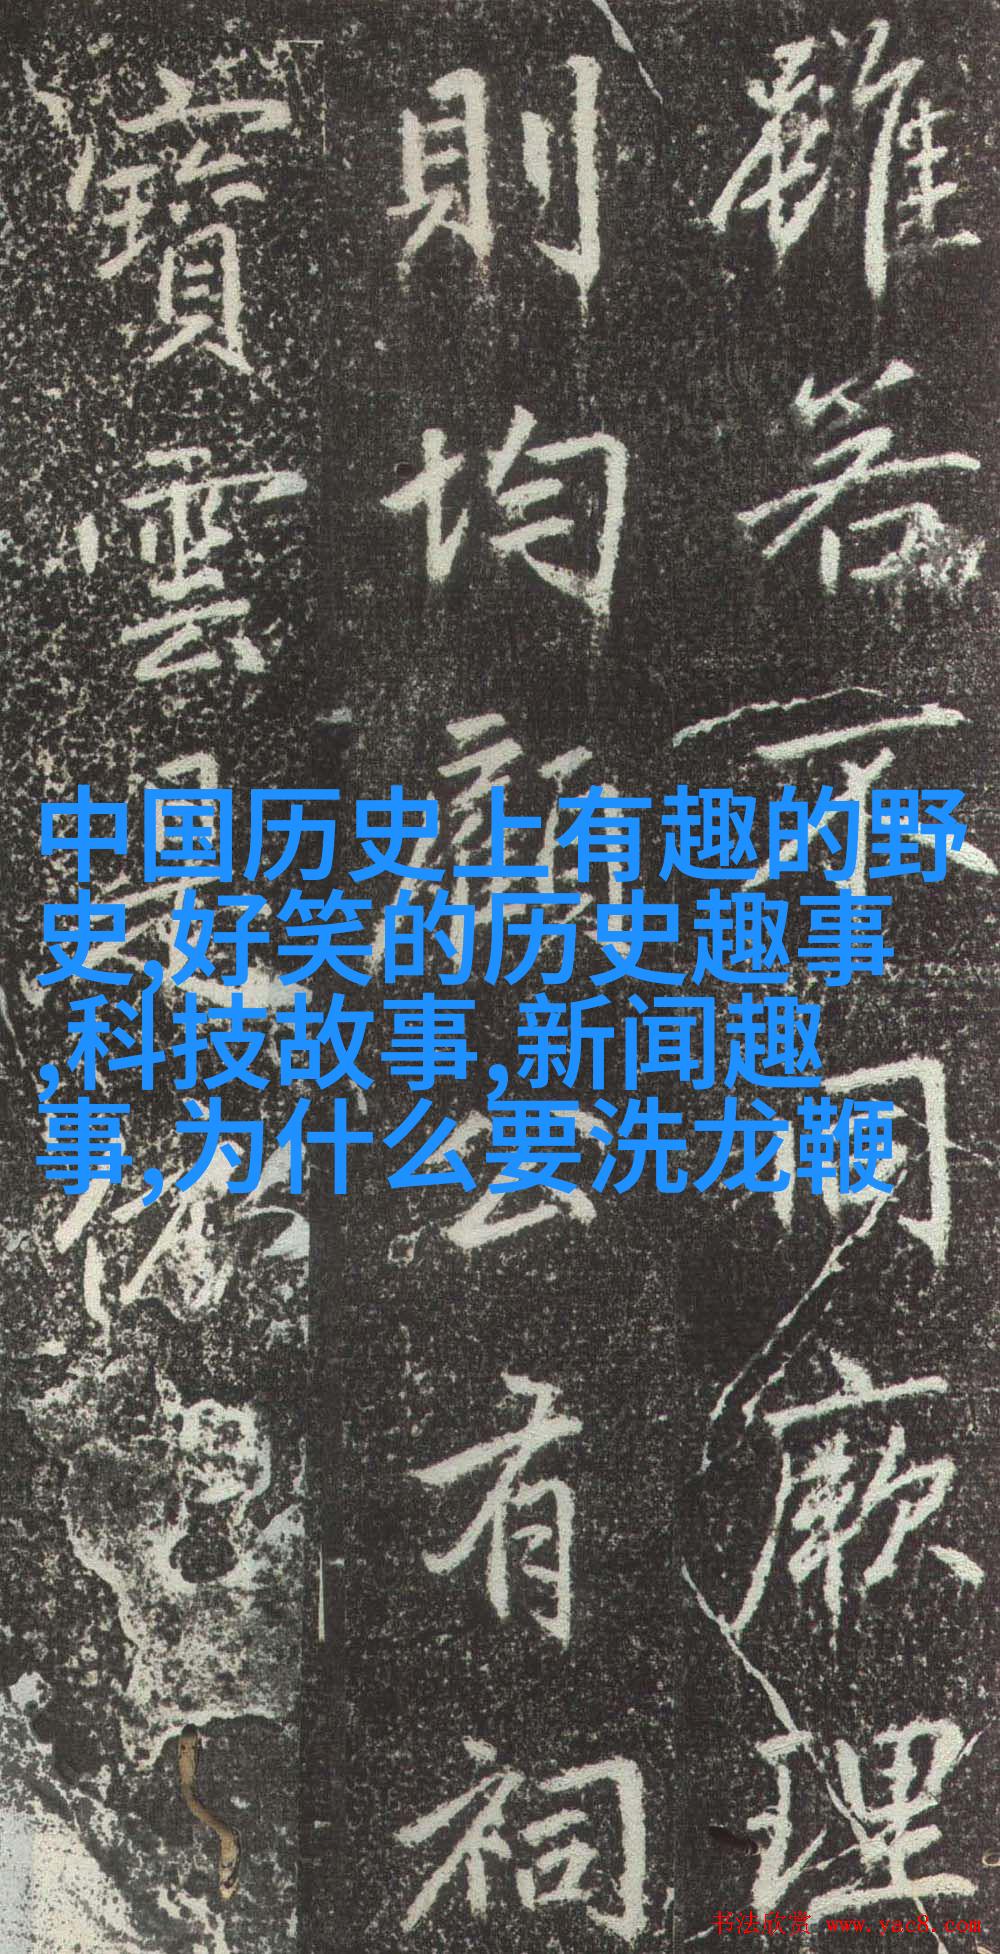 雖若不同厥理
則均顏公有祠
寶雲是
中国历史上有趣的野
史,好笑的历史趣事
,科技故事,新闻趣
事,为什么要洗龙鞭
书法欣赏 www.yac8.com